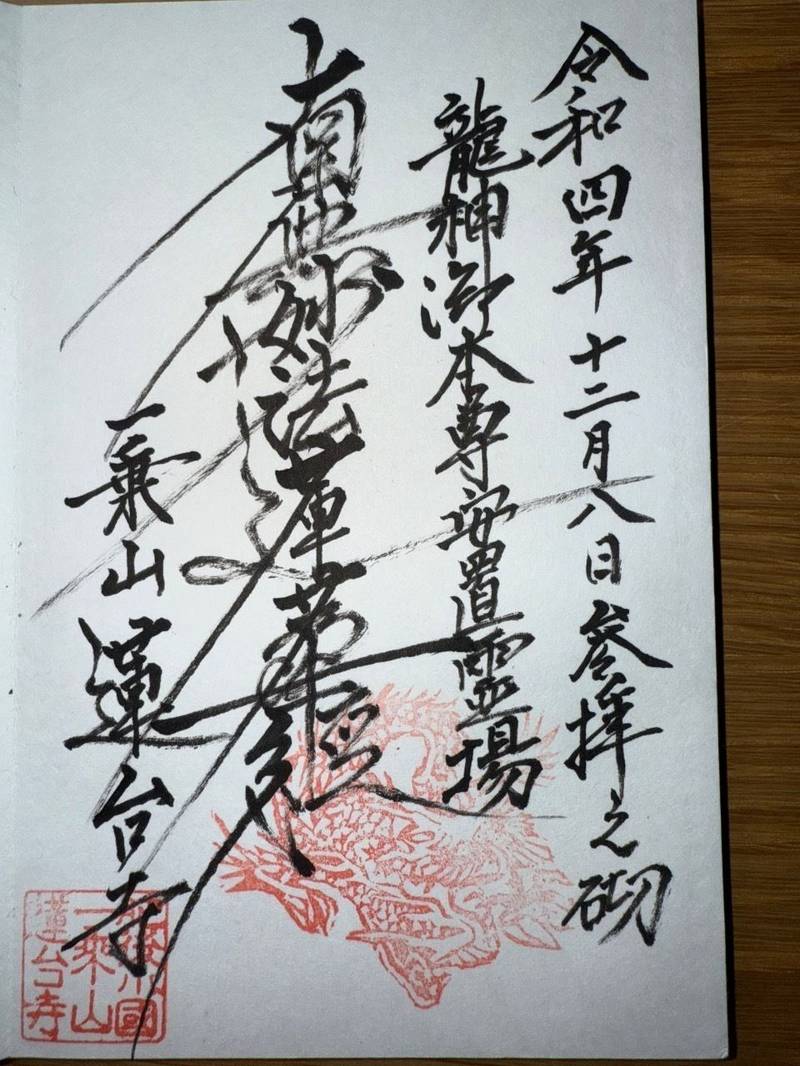 令和四年十二月八日参拝之砌
龍神御本尊安置霊場
南無妙法蓮華経
一乗山蓮台寺
一乗山
蓮台寺